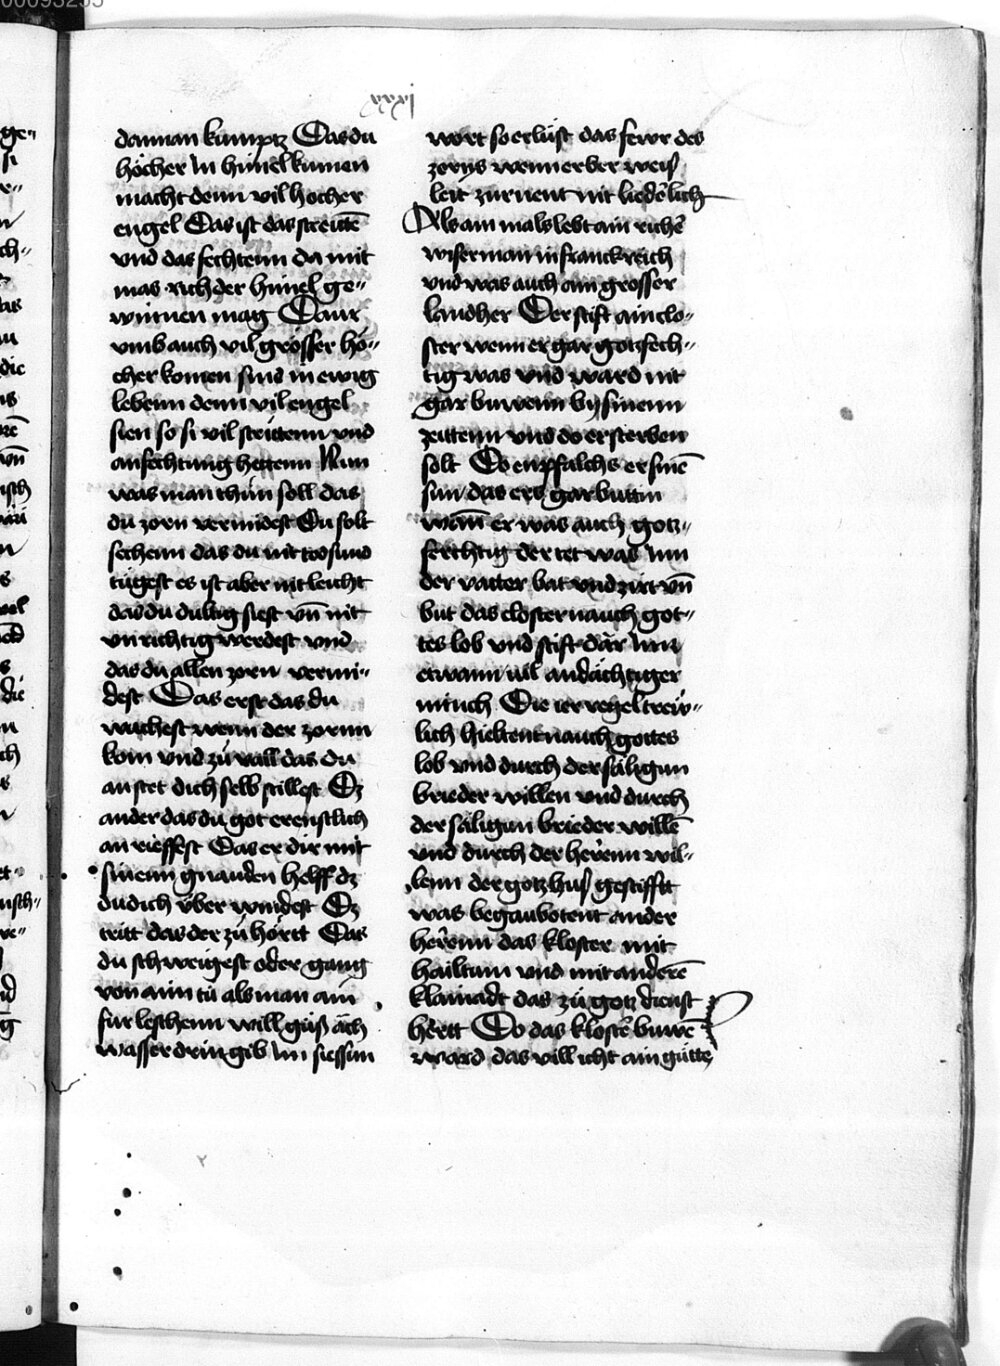 xxxj
dannan kumptz Das du
höcher In himel kumen
macht denn vil hocher
engel Das ist das streitte̅
vnd das fechtenn da mit
mas rich der himel ge„
winnen mag Darr
vmb auch vil grösser hö„
cher komen sind in ewig
lebenn denn vil engel
sien so si vil strittenn vnd
anfechtung hettenn Nun
was man thun soll das
du zorn vermidest Du solt
sechenn das du nit tod sund
tügest es ist aber nit leicht
das du dultig siest vn̅ nit
vnrichtig werdest vnd
das du allen zorn vermi„
dest Das erst das du
wachest wenn der zornn
kom vnd zů vall das du
an stet dich selb stillest Dz
ander das du got ernstlich
an rieffest Das er dir mit
sinenn gnaden helff dz
du dich über windest Dz
tritt das der zů hörtt Das
du schweigest oder gang
von aim tů als man aim
für leschenn will güß äch
wasser drin gib Im siessun
wort so erlüst das fewr des
zorns wenn er ber weis
leit zürnent nit liederlich
Als am mals lebt ain riche̅
wiser man in franckreich
vnd was auch ain grosser
landher Der stift ain clo„
ster wenn er gar gotzfech„
tig was vnd ward nit
gar buwenn by sinenn
zeittenn vnd do er sterben
solt Do enpfalchs er sine̅
sun das ers gar buttin
wann er was auch gotz„
ferchtig der tet was Im
der vatter bat vnd ziert vn̅
but das closter nauch got„
tes lob vnd stift dar Inn
etwann vil andächtiger
münch Die ier regel trew„
lich hieltent nauch gottes
lob vnd durch der säligun
brieder willen vnd durch
der säligun brieder wille̅
vnd durch der herenn wil„
lenn der gotzhus gestifft
was begaubotent ander
herenn das kloster mit
hailtum vnd mit andere̅
klainadt das zů gotz dienst
hörtt Do das kloster buwe̅
ward das villicht ain gütte